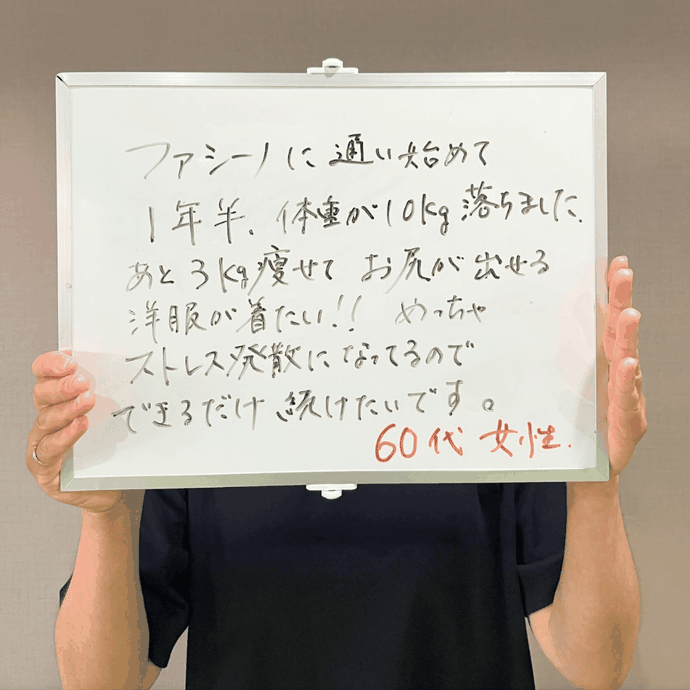 ファシーノに通い始めて
1年半、体重が10kg落ちました。
あと3kg痩せて お尻が出せる
洋服が着たい!! めっちゃ
ストレス発散になってるので
できるだけ続けたいです。
60代 女性.